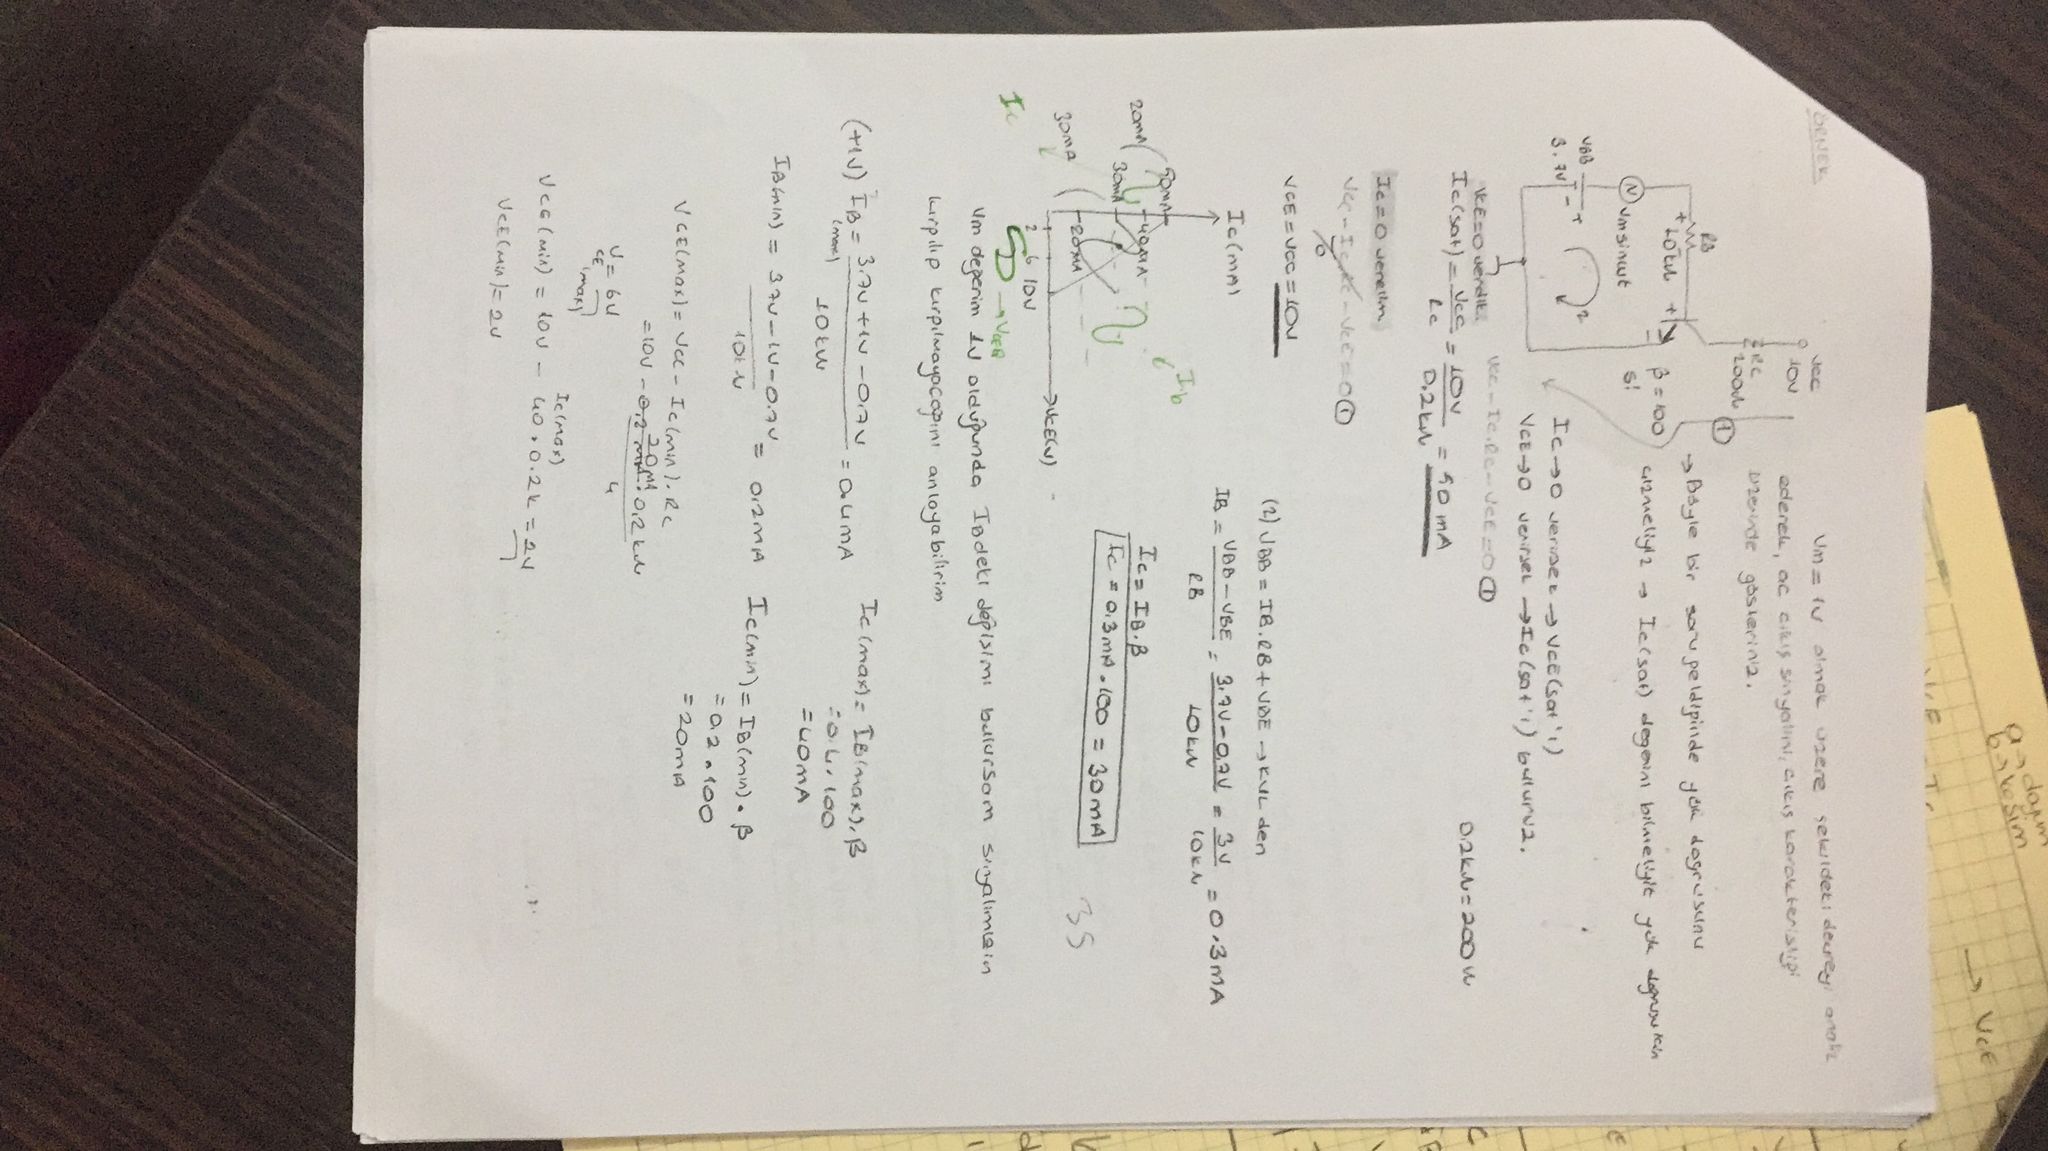 a → dayım
b → kesim
→ VCE
VCE
ÖRNEK
Vm = 1V olmak üzere şekildeki devreyi analiz
ederek, ac çıkış sinyalini, çıkış karakteristiği
üzerinde gösteriniz.
VCC
10V
RC
200Ω
①
RB
10kΩ
+ -
+
β = 100
Si
N Vmsinwt
VBB
3.7V
+
-
2
→ Böyle bir soru geldiğinde yük doğrusunu
çizmeliyiz → Ic(sat) değerini bilmeliyiz yük doğrusu için
Ic → 0 verirsek → VCE(sat'ı)
VCE → 0 verirsek → Ic(sat'ı) buluruz.
VCC - Ic.RC - VCE = 0 ①
VCE = 0 verdik.
Ic(sat) = VCC / RC = 10V / 0.2kΩ = 50 mA
0.2kΩ = 200 Ω
Ic = 0 verelim.
VCC - Ic.RC - VCE = 0 ①
0
VCE = VCC = 10V
(2) VBB = IB.RB + VBE → KVL den
IB = VBB - VBE / RB = 3.7V - 0.7V / 10kΩ = 3V / 10kΩ = 0.3mA
Ic = IB.β
Ic = 0.3mA.100 = 30mA
35
Ic(mA)
50mA
40mA
30mA
20mA
20mA
30mA
Ib
Ic
2 6 10V
VCE(V)
→ VCEQ
Vm değerim 1V olduğunda IBdeki değişimi bulursam sinyalimizin
kırpılıp kırpılmayacağını anlayabilirim
(+1V) IB(max) = 3.7V + 1V - 0.7V / 10kΩ = 0.4mA
Ic(max) = IB(max).β
= 0.4.100
= 40mA
IB(min) = 3.7V - 1V - 0.7V / 10kΩ = 0.2mA
Ic(min) = IB(min).β
= 0.2.100
= 20mA
VCE(max) = VCC - Ic(min).RC
= 10V - 20mA.0.2kΩ
4
VCE(max) = 6V
Ic(max)
VCE(min) = 10V - 40.0.2k = 2V
VCE(min) = 2V